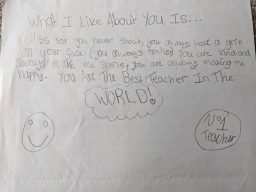 What I Like About You Is...
for you never shout, you always have a grin
on your face (you always smile) You are kind and
always make me smile, you are always making me
happy. You Are The Best Teacher In The
WORLD!
No1
Teacher